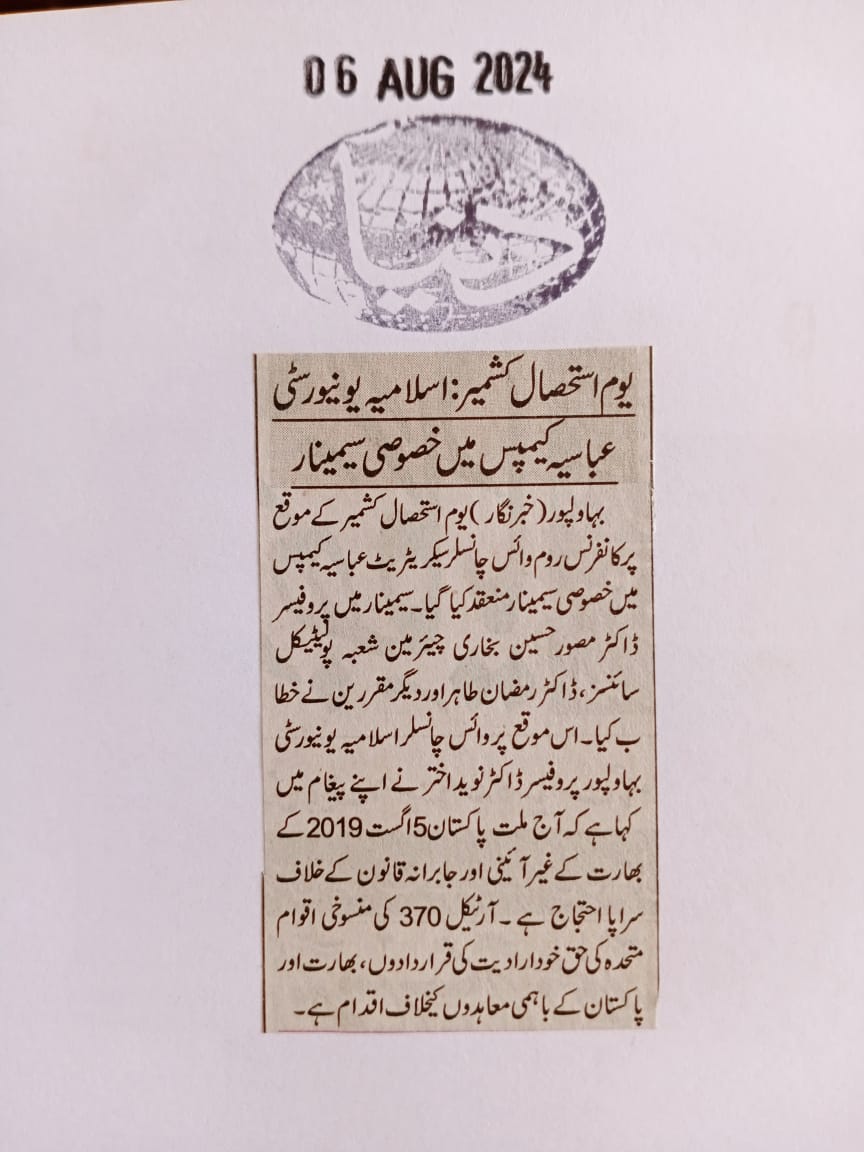 06 AUG 2024
دنیا
یوم استحصال کشمیر: اسلامیہ یونیورسٹی
عباسیہ کیمپس میں خصوصی سیمینار
بہاولپور (خبرنگار) یوم استحصال کشمیر کے موقع
پر کانفرنس روم وائس چانسلر سیکریٹریٹ عباسیہ کیمپس
میں خصوصی سیمینار منعقد کیا گیا۔ سیمینار میں پروفیسر
ڈاکٹر مصور حسین بخاری چیئرمین شعبہ پولیٹیکل
سائنسز، ڈاکٹر رمضان طاہر اور دیگر مقررین نے خطا
ب کیا۔ اس موقع پر وائس چانسلر اسلامیہ یونیورسٹی
بہاولپور پروفیسر ڈاکٹر نوید اختر نے اپنے پیغام میں
کہا ہے کہ آج ملت پاکستان 5 اگست 2019 کے
بھارت کے غیر آئینی اور جابرانہ قانون کے خلاف
سراپا احتجاج ہے ۔ آرٹیکل 370 کی منسوخی اقوام
متحدہ کی حق خودارادیت کی قراردادوں، بھارت اور
پاکستان کے باہمی معاہدوں کیخلاف اقدام ہے۔